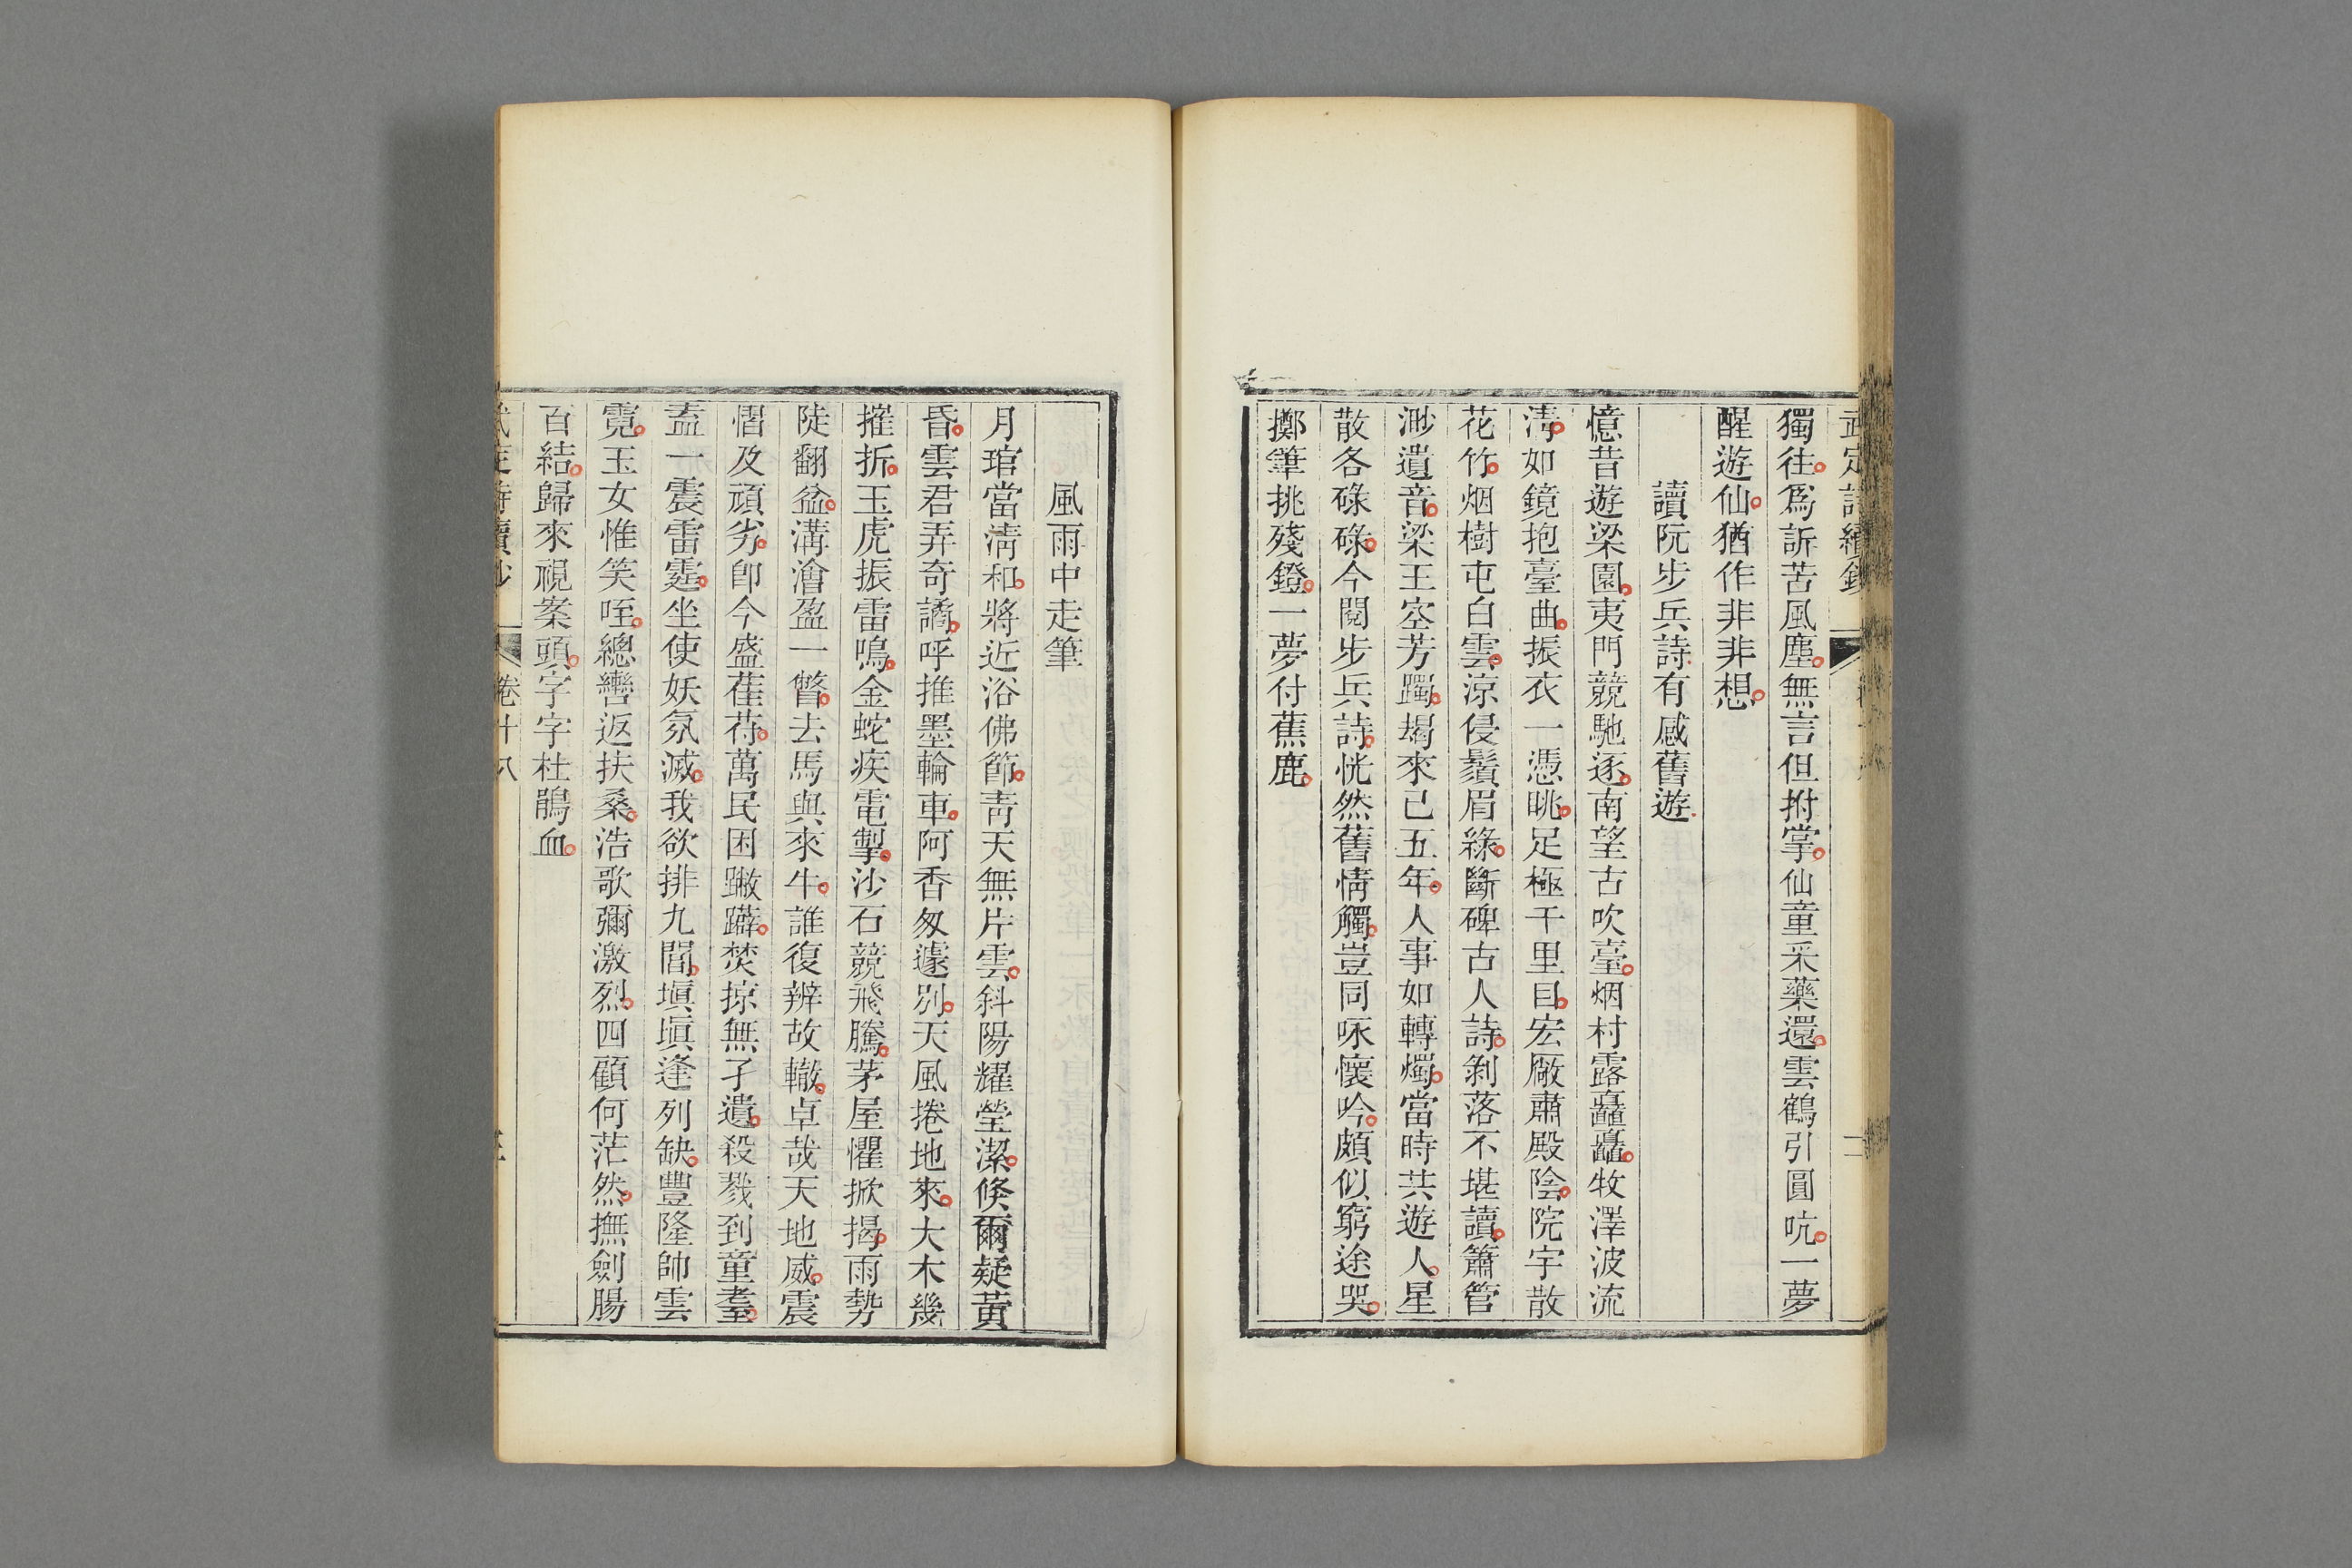 武定詩續鈔
獨往爲訴苦風塵無言但拊掌仙童采藥還雲鶴引圓吭一夢
醒遊仙猶作非非想
讀阮步兵詩有感舊遊
憶昔遊梁園夷門競馳逐南望古吹臺烟村露矗矗牧澤波流
淸如鏡抱臺曲振衣一憑眺足極千里目宏厰肅殿陰院宇散
花竹烟樹屯白雲涼侵鬚眉綠斷碑古人詩剝落不堪讀簫管
渺遺音梁王空芳躅朅來已五年人事如轉燭當時共遊人星
散各碌碌今閱步兵詩恍然舊情觸豈同咏懷吟頗似窮途哭
擲筆挑殘鐙一夢付蕉鹿
風雨中走筆
月琯當淸和將近浴佛節靑天無片雲斜陽耀瑩潔倏爾疑黃
昏雲君弄奇譎呼推墨輪車阿香匆遽別天風捲地來大木幾
摧折玉虎振雷鳴金蛇疾電掣沙石競飛騰茅屋懼掀揭雨勢
陡翻盆溝澮盈一瞥去馬與來牛誰復辨故轍卓哉天地威震
慴及頑劣卽今盛萑苻萬民困蹩躠焚掠無孑遺殺戮到童耋
盍一震雷霆坐使妖氛滅我欲排九閽塡塡逢列缺豐隆帥雲
霓玉女惟笑咥總轡返扶桑浩歌彌激烈四顧何茫然撫劍腸
百結歸來視案頭字字杜鵑血
武定詩續鈔 卷十八